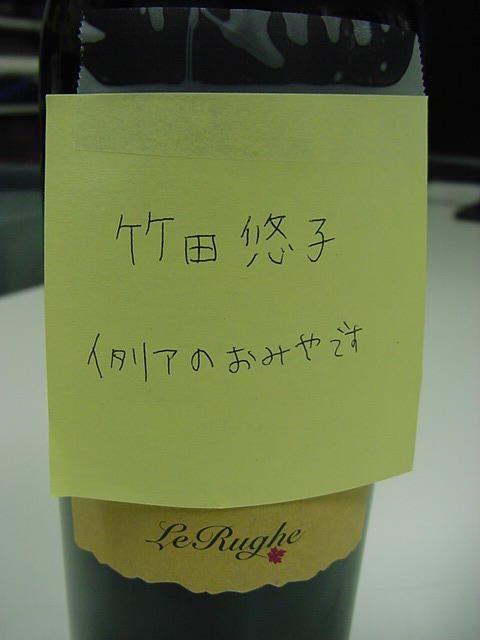 竹田 悠子
イタリアのおみやです
Le Rughe